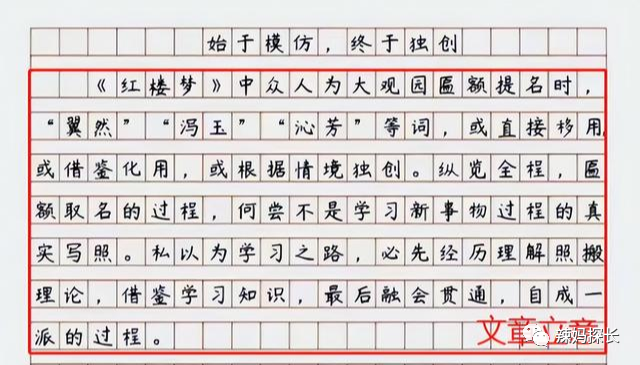 始于模仿，终于独创
《红楼梦》中众人为大观园匾额提名时，
“翼然”“冯玉”“沁芳”等词，或直接移用，
或借鉴化用，或根据情境独创。纵览全程，匾
额取名的过程，何尝不是学习新事物过程的真
实写照。私以为学习之路，必先经历理解照搬
理论，借鉴学习知识，最后融会贯通，自成一
派的过程。
文章立意
辣妈探长